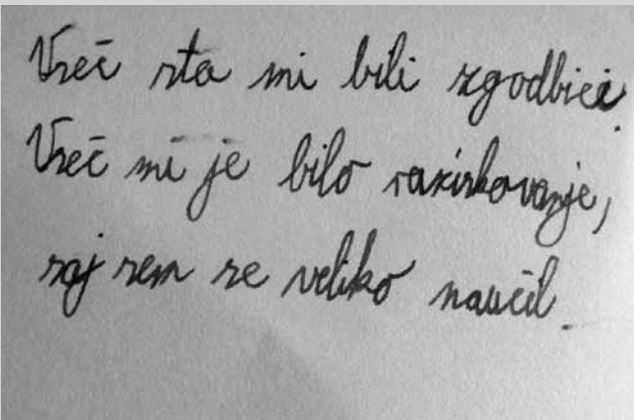 Všeč sta mi bili zgodbici.
Všeč mi je bilo raziskovanje,
saj sem se veliko naučil.